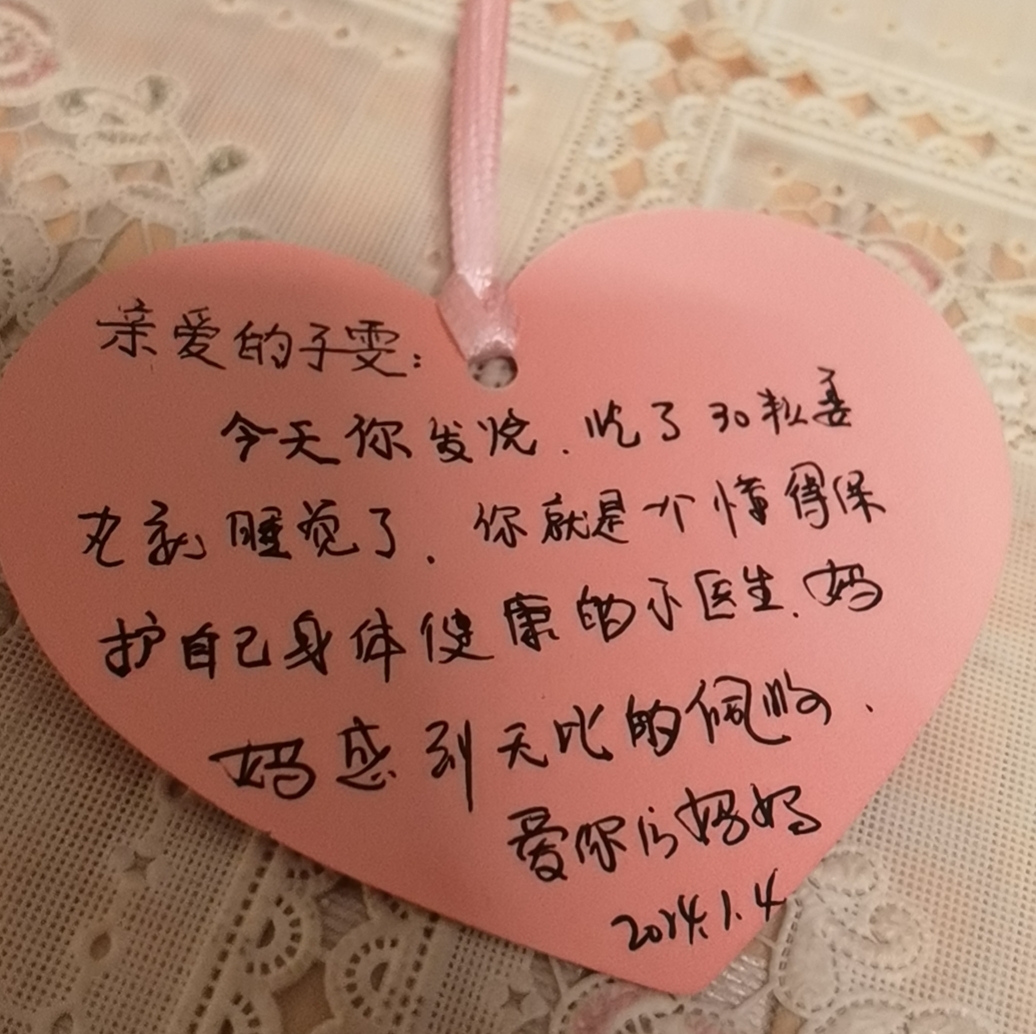 亲爱的子雯:
今天你发烧.吃了30粒姜
丸就睡觉了.你就是一个懂得保
护自己身体健康的小医生.妈
妈感到无比的佩服.
爱你的妈妈
2014.1.4